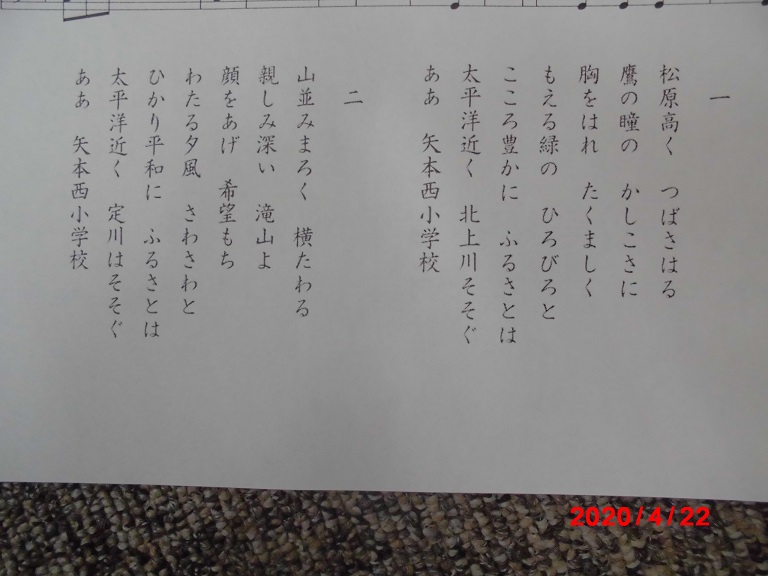 一
松原高く　つばさはる
鷹の瞳の　かしこさに
胸をはれ　たくましく
もえる緑の　ひろびろと
こころ豊かに　ふるさとは
太平洋近く　北上川そそぐ
ああ　矢本西小学校
二
山並みまろく　横たわる
親しみ深い　滝山よ
顔をあげ　希望もち
わたる夕風　さわさわと
ひかり平和に　ふるさとは
太平洋近く　定川はそそぐ
ああ　矢本西小学校
2020/4/22